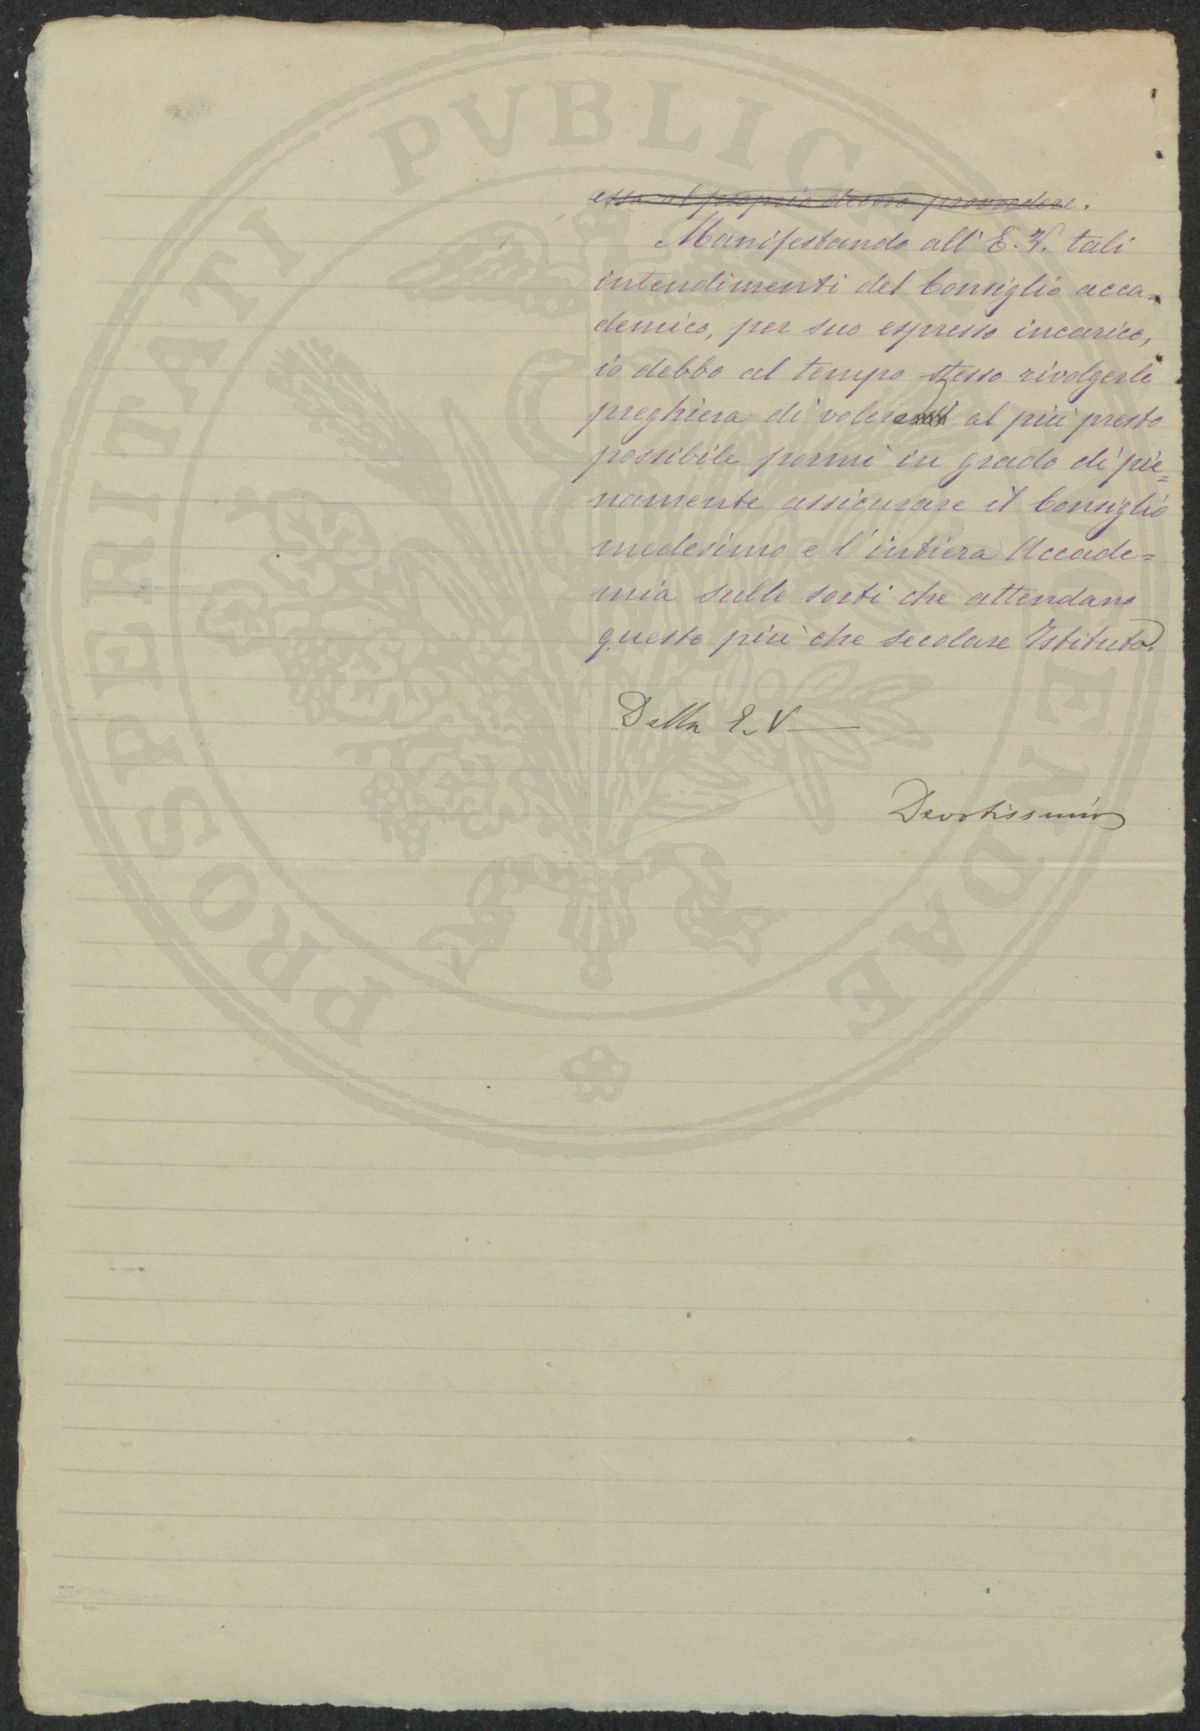 essa al proprio decoro provvedere.
Manifestando all'E. V. tali
intendimenti del Consiglio acca=
demico, per suo espresso incarico,
io debbo al tempo stesso rivolgerle
preghiera di volere al più presto
possibile pormi in grado di pie=
namente assicurare il Consiglio
medesimo e l'intiera Accade=
mia sulle sorti che attendano
questo più che secolare Istituto.
Della E. V.
Devotissimo
PROSPERITATI PVBLICAE AVGENDAE